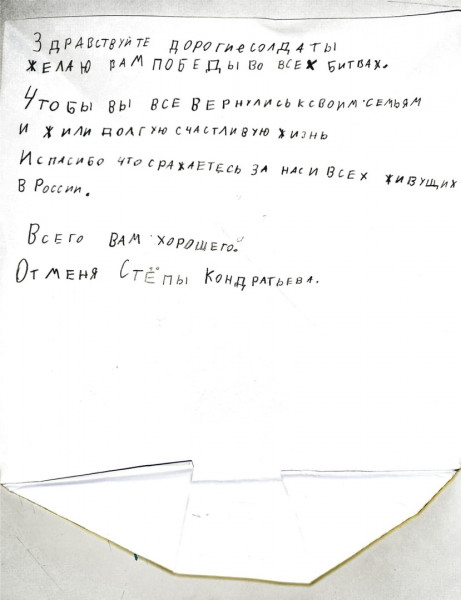 Здравствуйте дорогие солдаты
желаю вам победы во всех битвах.
Чтобы вы все вернулись к своим семьям
и жили долгую счастливую жизнь
И спасибо что сражаетесь за нас и всех живущих
в России.
Всего вам хорошего.
От меня Стёпы Кондратьева.